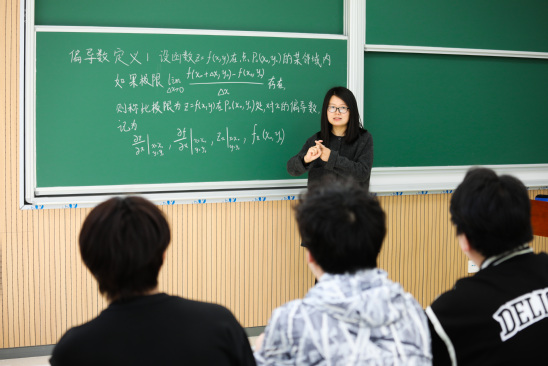 偏导数定义: 设函数z=f(x,y)在点P₀(x₀,y₀)的某邻域内
如果极限 lim Δx→0 [f(x₀+Δx,y₀)-f(x₀,y₀)]/Δx 存在,
则称此极限为z=f(x,y)在P₀(x₀,y₀)处对x的偏导数,
记为
∂z/∂x|x=x₀ y=y₀, ∂f/∂x|x=x₀ y=y₀, zₓ|x=x₀ y=y₀, fₓ(x₀,y₀)
DELI